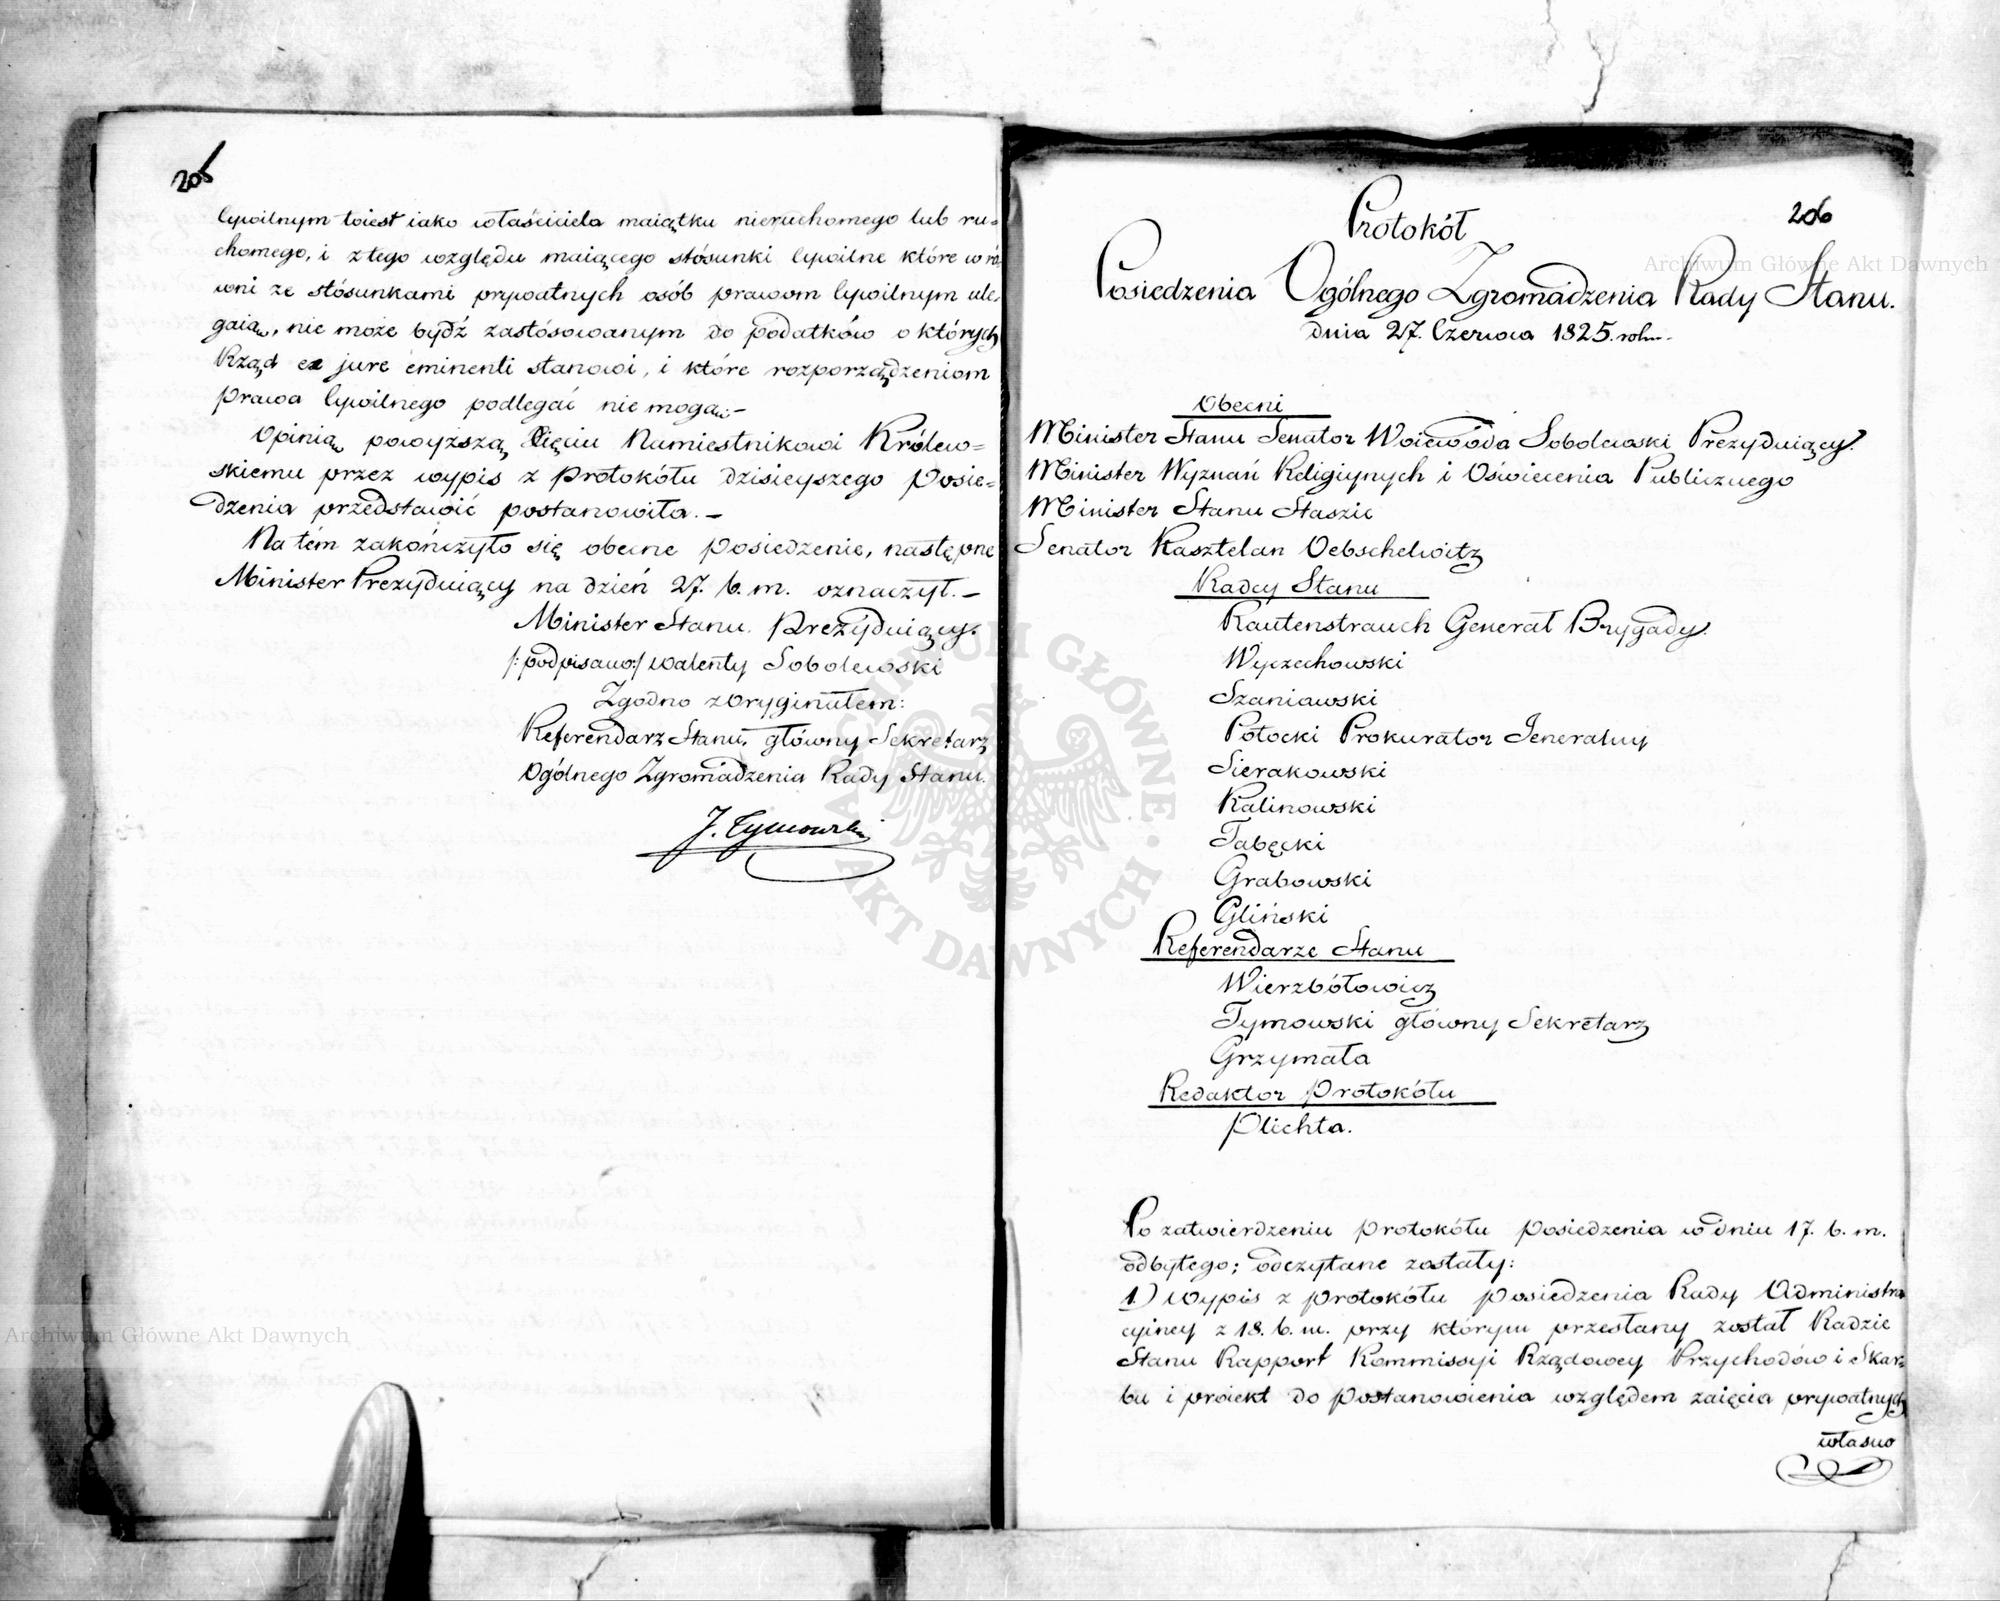 206
Cywilnym toiest iako właściciela maiątku nieruchomego lub ru=
chomego, i z tego względu maiącego stósunki Cywilne które w ró=
wni ze stósunkami prywatnych osób prawom Cywilnym ule=
gaią, nie może bydź zastósowanym do podatków o których
Rząd ex jure eminenti stanowi, i które rozporządzeniom
prawa Cywilnego podlegać nie mogą.–
Opinią powyższą Xięciu Namiestnikowi Królew=
skiemu przez wypis z Protokółu dzisieyszego Posie=
dzenia przedstawić postanowiła.–
Na tém zakończyło się obecne posiedzenie, następne
Minister Prezyduiący na dzień 27. b. m. oznaczył.–
Minister Stanu Prezyduiący.
/:podpisano:/ Walenty Sobolewski
Zgodno z Oryginałem:
Referendarz Stanu, główny Sekretarz
Ogólnego Zgromadzenia Rady Stanu.
J. Tymowski
206
Protokół
Posiedzenia Ogólnego Zgromadzenia Rady Stanu.
dnia 27. Czerwca 1825. roku.
Obecni
Minister Stanu Senator Woiewoda Sobolewski Prezyduiący.
Minister Wyznań Religiynych i Oświecenia Publicznego
Minister Stanu Staszic
Senator Kasztelan Oebschelwitz
Radcy Stanu
Rautenstrauch Generał Brygady.
Wyczechowski
Szaniawski
Potocki Prokurator Jeneralny
Sierakowski
Kalinowski
Tabęcki
Grabowski
Gliński
Referendarze Stanu
Wierzbołowicz
Tymowski główny Sekretarz
Grzymała
Redaktor Protokółu
Plichta.
Po zatwierdzeniu protokółu posiedzenia w dniu 17. b. m.
odbytego; odczytane zostały:
1.) Wypis z protokółu posiedzenia Rady Administra
cyiney z 18. b. m. przy którym przesłany został Radzie
Stanu Rapport Kommissyi Rządowey Przychodów i Skar=
bu i proiekt do postanowienia względem zaięcia prywatnych
własno
Archiwum Główne Akt Dawnych
Archiwum Główne Akt Dawnych
ARCHIWUM GŁÓWNE · AKT DAWNYCH ·